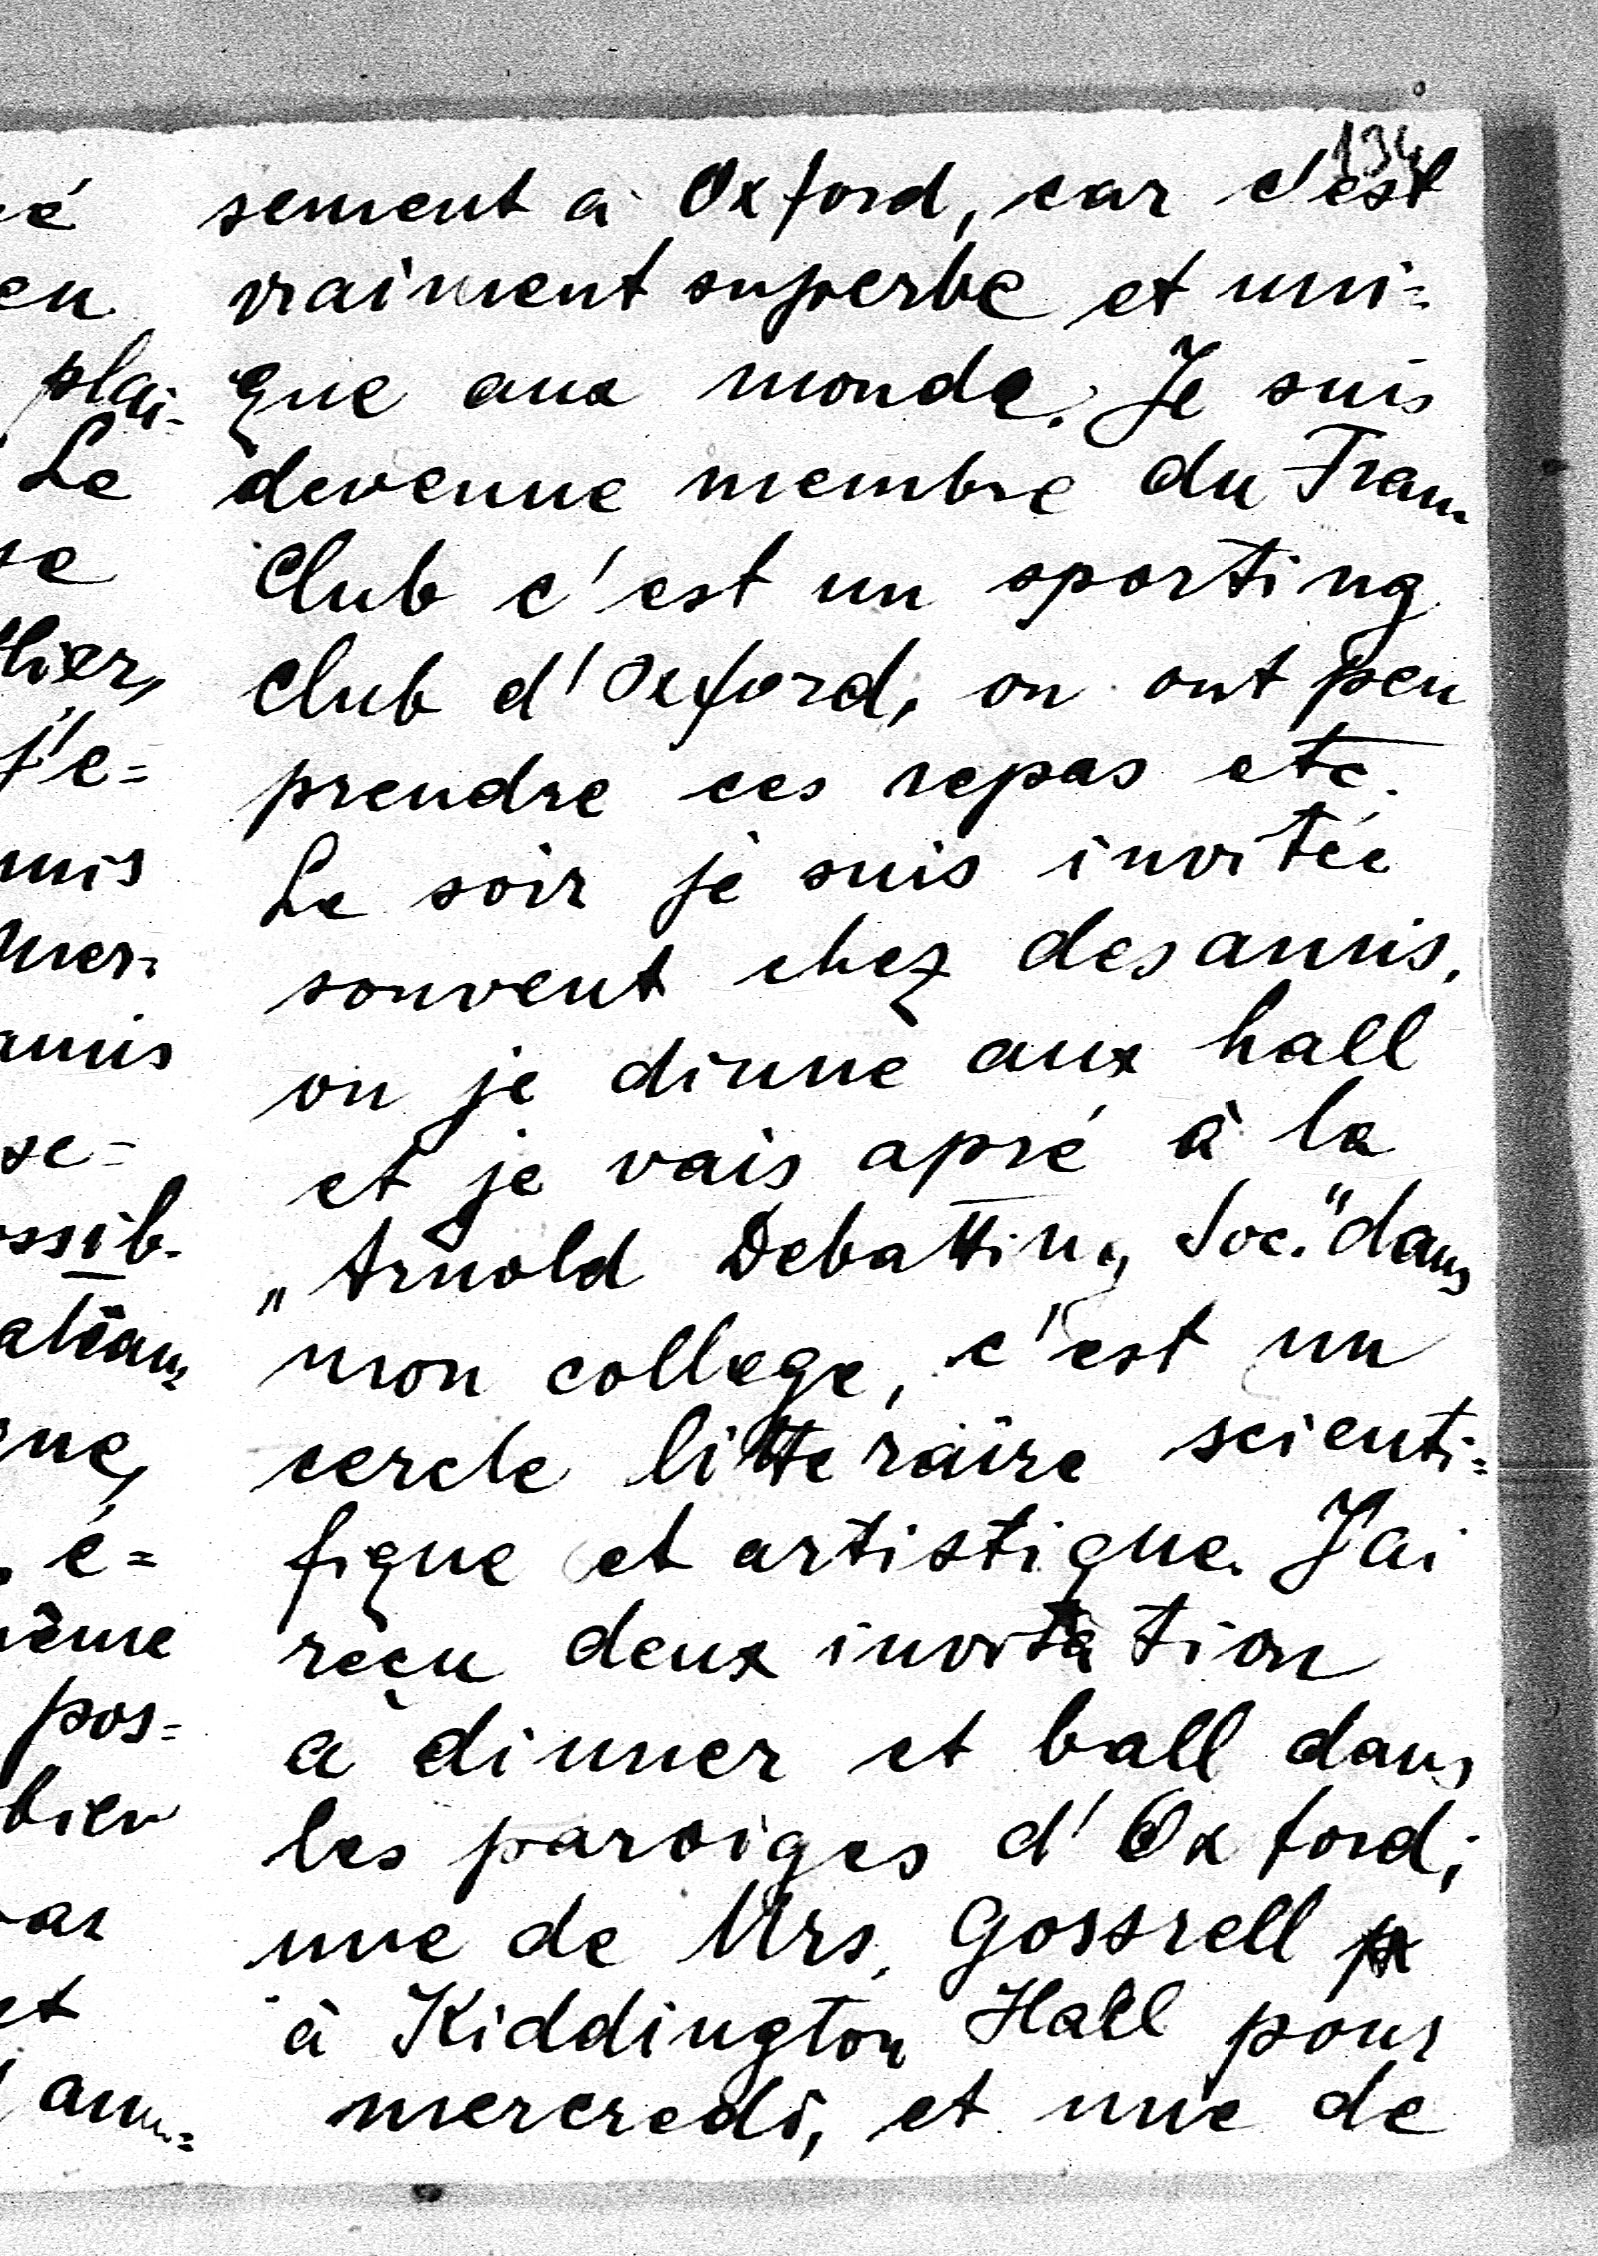 134
sement a Oxford, car c'est
vraiment superbe et uni=
que aux monde. Je suis
devenue membre du Fram
Club c'est un sporting
club d'Oxford, on ont peu
prendre ces repas etc.
Le soir je suis invitée
souvent chez des amis,
ou je dinne aux hall
et je vais apré à la
„Arnold Debatting Soc." dans
mon college, c'est un
cercle litteräire scienti=
fique et artistique. J'ai
reçu deux invitation
a dinner et ball dans
les paroiges d'Oxford;
une de Mrs. Gossrell
à Kiddington Hall pour
mercredi, et une de
en
plai-
Le
se
j'e=
amis
se=
é=
pos=
bien
et